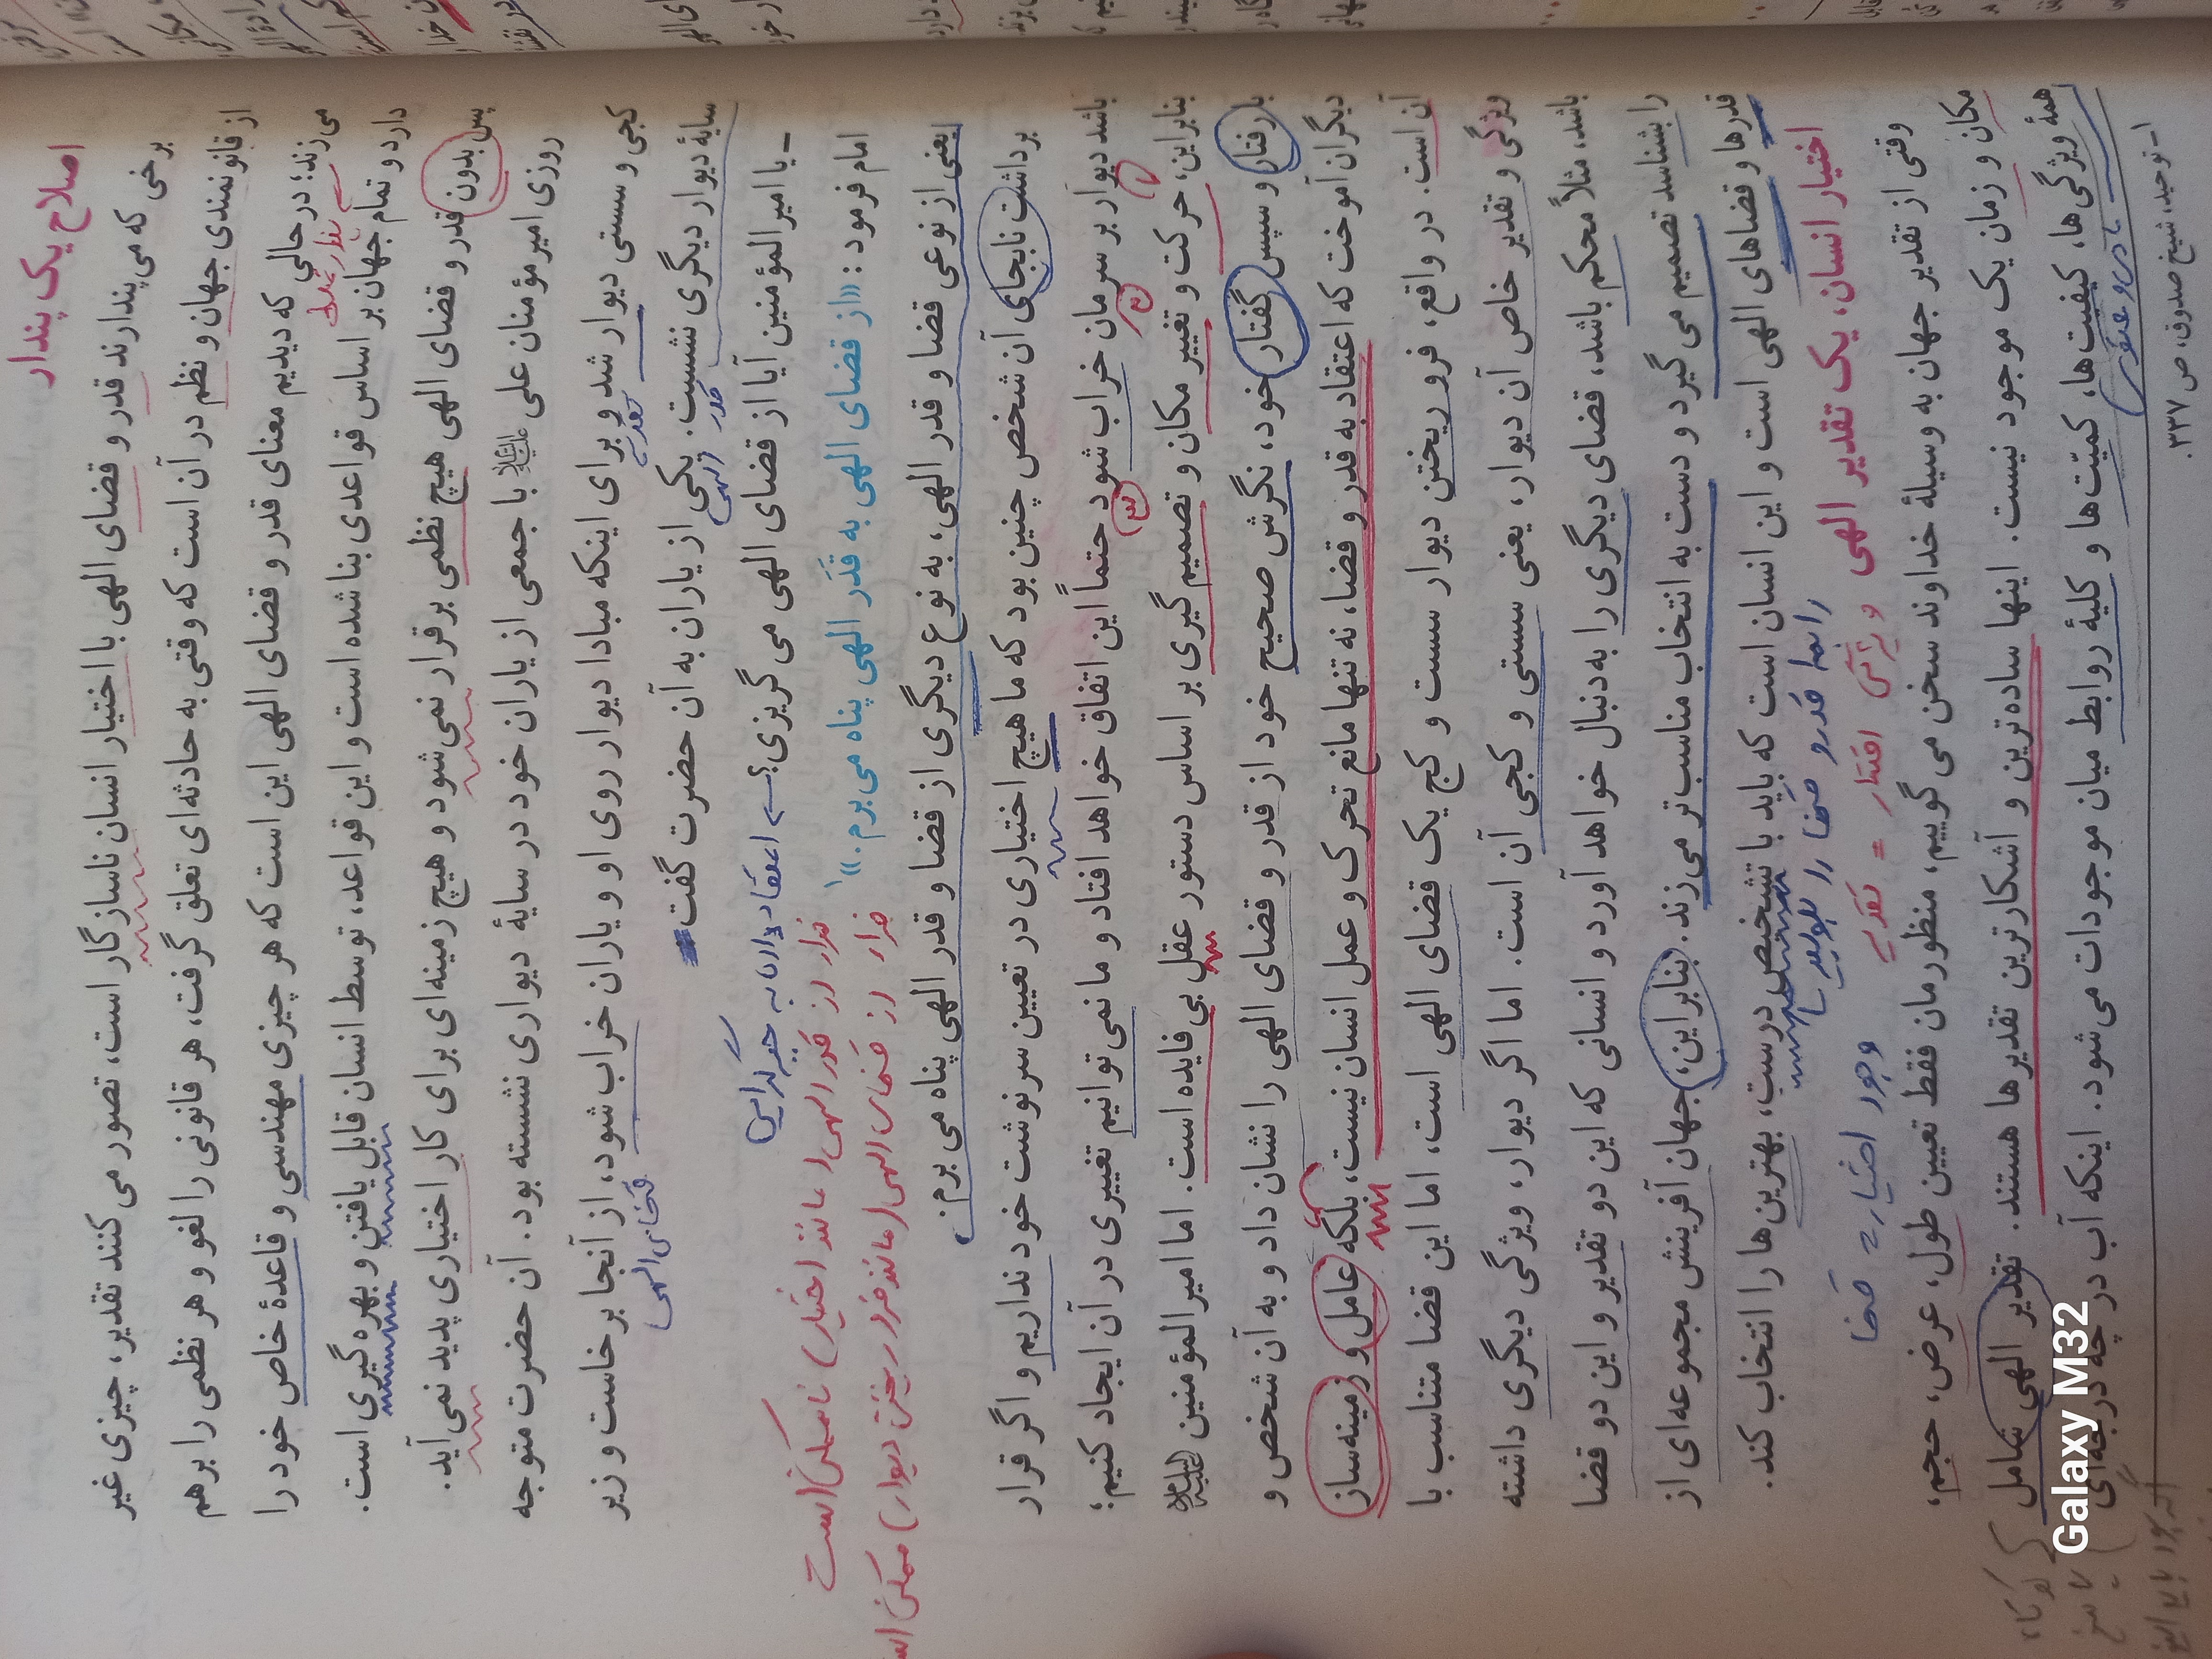 اصلاح یک پندار
برخی که می‌پندارند قدر و قضای الهی با اختیار انسان ناسازگار است، تصور می کنند تقدیر، چیزی غیر
از قانونمندی جهان و نظم در آن است که وقتی به حادثه‌ای تعلق گرفت، هر قانونی را لغو و هر نظمی را برهم
می‌زند؛ در حالی که دیدیم معنای قدر و قضای الهی این است که هر چیزی مهندسی و قاعدهٔ خاص خود را
دارد و تمام جهان بر اساس قواعدی بنا شده است و این قواعد، توسط انسان قابل یافتن و بهره‌گیری است.
پس بدون قدر و قضای الهی هیچ نظمی برقرار نمی‌شود و هیچ زمینه‌ای برای کار اختیاری پدید نمی‌آید.
روزی امیرمؤمنان علی علیه‌السلام با جمعی از یاران خود در سایهٔ دیواری نشسته بود. آن حضرت متوجه
کجی و سستی دیوار شد و برای اینکه مبادا دیوار روی او و یاران خراب شود، از آنجا برخاست و زیر
قضای الهی
سایهٔ دیوار دیگری نشست. یکی از یاران به آن حضرت گفت
قدر الهی
ـ یا امیرالمؤمنین آیا از قضای الهی می گریزی؟ اعتقاد یاران به جبرگرایی
امام فرمود: «از قضای الهی به قَدَر الهی پناه می‌برم.»۱
فرار از قدر الهی (مانند اختیار) ناممکن است
فرار از قضای الهی (مانند فرو ریختن دیوار) ممکن است
یعنی از نوعی قضا و قدر الهی، به نوع دیگری از قضا و قدر الهی پناه می برم.
برداشت نابجای آن شخص چنین بود که ما هیچ اختیاری در تعیین سرنوشت خود نداریم و اگر قرار
باشد دیوار بر سرمان خراب شود حتماً این اتفاق خواهد افتاد و ما نمی توانیم تغییری در آن ایجاد کنیم؛
بنابراین، حرکت و تغییر مکان و تصمیم‌گیری بر اساس دستور عقل بی فایده است. اما امیرالمؤمنین علیه‌السلام
با رفتار و سپس گفتار خود، نگرش صحیح خود از قدر و قضای الهی را نشان داد و به آن شخص و
دیگران آموخت که اعتقاد به قدر و قضا، نه تنها مانع تحرک و عمل انسان نیست، بلکه عامل و زمینه‌ساز
آن است. در واقع، فرو ریختن دیوار سست و کج یک قضای الهی است، اما این قضا متناسب با
ویژگی و تقدیر خاص آن دیوار، یعنی سستی و کجی آن است. اما اگر دیوار، ویژگی دیگری داشته
باشد، مثلاً محکم باشد، قضای دیگری را به دنبال خواهد آورد و انسانی که این دو تقدیر و این دو قضا
را بشناسد تصمیم می گیرد و دست به انتخاب مناسب‌تر می‌زند. بنابراین، جهان آفرینش مجموعه‌ای از
قدرها و قضاهای الهی است و این انسان است که باید با تشخیص درست، بهترین‌ها را انتخاب کند.
اختیار انسان، یک تقدیر الهی
ویژگی اختیار = تقدیر
وجود اختیار = قضا
وقتی از تقدیر جهان به وسیلهٔ خداوند سخن می گوییم، منظورمان فقط تعیین طول، عرض، حجم،
مکان و زمان یک موجود نیست. اینها ساده‌ترین و آشکارترین تقدیرها هستند. تقدیر الهی شامل
همهٔ ویژگی‌ها، کیفیت‌ها، کمیّت‌ها و کلیهٔ روابط میان موجودات می‌شود. اینکه آب در چه درجه‌ای
۱ـ توحید، شیخ صدوق، ص ۳۳۷.
Galaxy M32